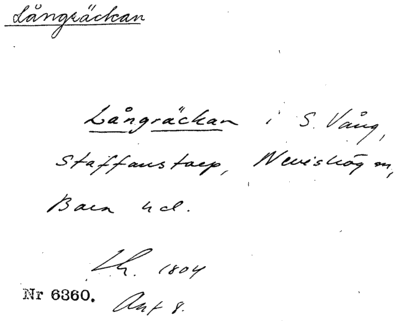 Långräckan
Långräckan i S. Vång,
Staffanstorp, Nevishög sn,
Bara hd.
Lh. 1804
Nr 6360.
Akt 8.